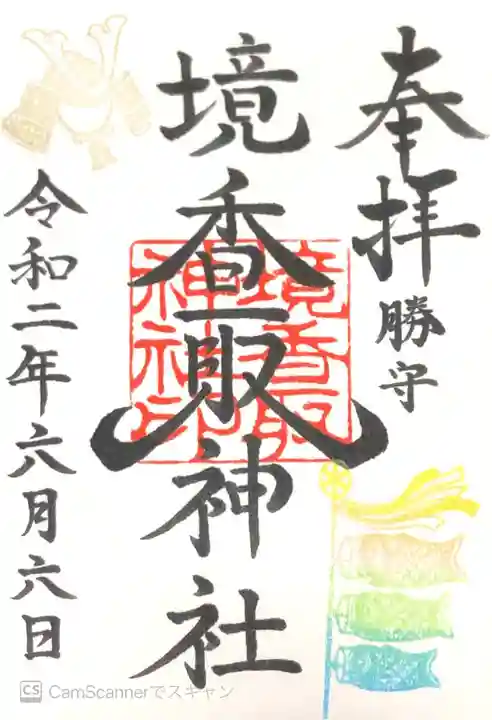 奉拝
勝守
境香取神社
境香取
神社神印
令和二年六月六日
CS CamScannerでスキャン